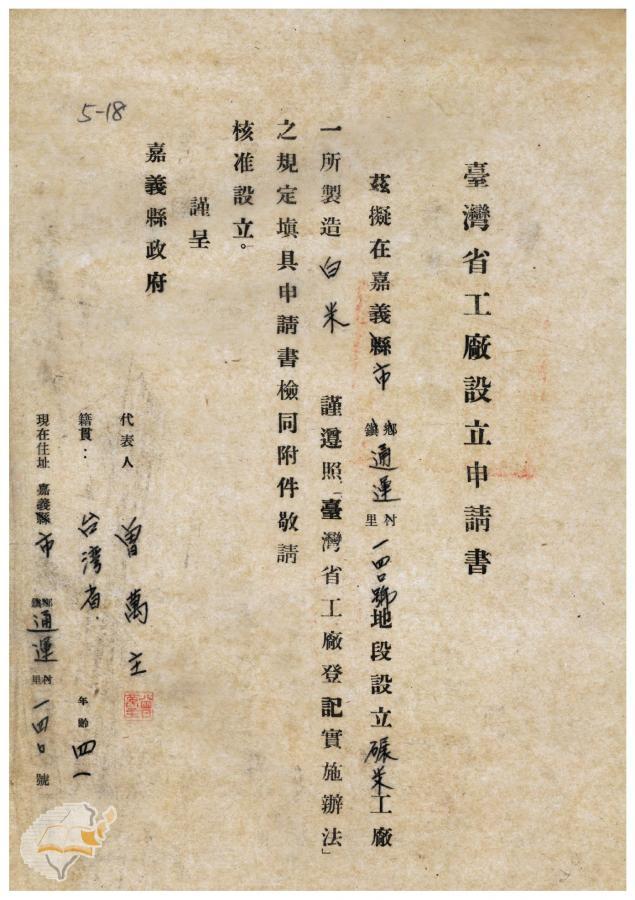 5-18
臺灣省工廠設立申請書
茲擬在嘉義縣市鄉鎮通運村里一四〇號地段設立碾米工廠
一所製造白米謹遵照「臺灣省工廠登記實施辦法」
之規定填具申請書檢同附件敬請
核准設立。
謹呈
嘉義縣政府
代表人 曾萬主
籍貫：台灣省 年齡 四一
現在住址 嘉義縣市鄉鎮通運村里一四〇號